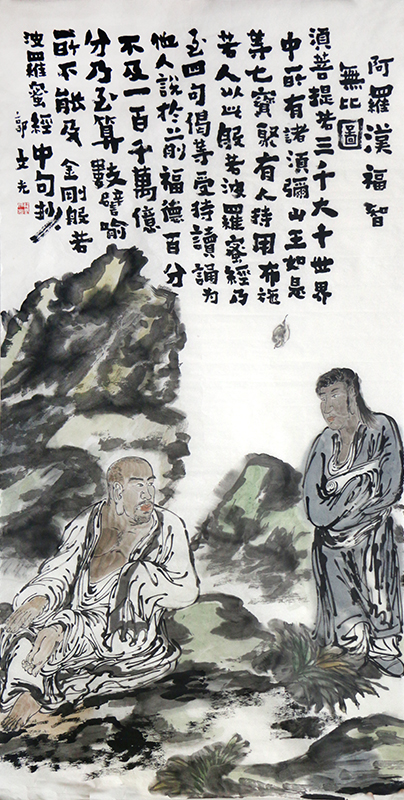 阿羅漢福智
無比圖
湏菩提若三千大千世界
中所有諸湏彌山王如是
等七寶聚有人持用布施
若人以此般若波羅蜜經乃
至四句偈等受持讀誦为
他人說於前福德百分
不及一百千萬億
分乃至算數譬喻
所不能及 金剛般若
波羅蜜經中句抄
郭文光